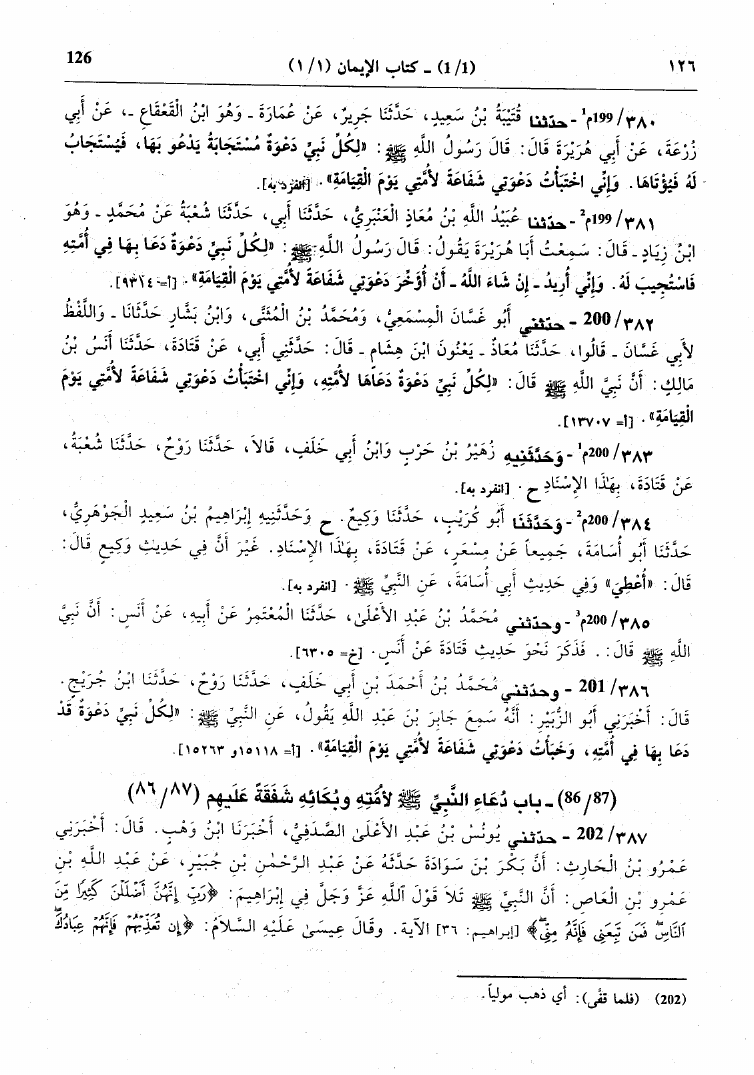 ١٢٦ (1/1) ـ كتاب الإيمان (١/١) 126
٣٨٠/199م¹ -حدّثنا قُتَيْبَةُ بْنُ سَعِيدٍ، حَدَّثَنَا جَرِيرٌ، عَنْ عُمَارَةَ ـ وَهُوَ ابْنُ الْقَعْقَاعِ ـ، عَنْ أَبِي
زُرْعَةَ، عَنْ أَبِي هُرَيْرَةَ قَالَ: قَالَ رَسُولُ اللَّهِ ﷺ: «لِكُلِّ نَبِيٍّ دَعْوَةٌ مُسْتَجَابَةٌ يَدْعُو بِهَا، فَيُسْتَجَابُ
لَهُ فَيُؤْتَاهَا. وَإِنِّي اخْتَبَأْتُ دَعْوَتِي شَفَاعَةً لأُمَّتِي يَوْمَ الْقِيَامَةِ». [انفرد به].
٣٨١/199م² -حدّثنا عُبَيْدُ اللَّهِ بْنُ مُعَاذٍ الْعَنْبَرِيُّ، حَدَّثَنَا أَبِي، حَدَّثَنَا شُعْبَةُ عَنْ مُحَمَّدٍ ـ وَهُوَ
ابْنُ زِيَادٍ ـ قَالَ: سَمِعْتُ أَبَا هُرَيْرَةَ يَقُولُ: قَالَ رَسُولُ اللَّهِ ﷺ: «لِكُلِّ نَبِيٍّ دَعْوَةٌ دَعَا بِهَا فِي أُمَّتِهِ
فَاسْتُجِيبَ لَهُ. وَإِنِّي أُرِيدُ ـ إِنْ شَاءَ اللَّهُ ـ أَنْ أُؤَخِّرَ دَعْوَتِي شَفَاعَةً لأُمَّتِي يَوْمَ الْقِيَامَةِ».
٣٨٢/200 - حدّثني أَبُو غَسَّانَ الْمِسْمَعِيُّ، وَمُحَمَّدُ بْنُ الْمُثَنَّى، وَابْنُ بَشَّارٍ حَدَّثَانَا ـ وَاللَّفْظُ
لأَبِي غَسَّانَ ـ قَالُوا، حَدَّثَنَا مُعَاذٌ ـ يَعْنُونَ ابْنَ هِشَامٍ ـ قَالَ: حَدَّثَنِي أَبِي، عَنْ قَتَادَةَ، حَدَّثَنَا أَنَسُ بْنُ
مَالِكٍ: أَنَّ نَبِيَّ اللَّهِ ﷺ قَالَ: «لِكُلِّ نَبِيٍّ دَعْوَةٌ دَعَاهَا لأُمَّتِهِ، وَإِنِّي اخْتَبَأْتُ دَعْوَتِي شَفَاعَةً لأُمَّتِي يَوْمَ
الْقِيَامَةِ». [أ= ١٣٧٠٧].
٣٨٣/200م¹ -وَحَدَّثَنِيهِ زُهَيْرُ بْنُ حَرْبٍ وَابْنُ أَبِي خَلَفٍ، قَالاَ، حَدَّثَنَا رَوْحٌ، حَدَّثَنَا شُعْبَةُ،
عَنْ قَتَادَةَ، بِهَذَا الإِسْنَادِ ح. [انفرد به].
٣٨٤/200م² -وَحَدَّثَنَا أَبُو كُرَيْبٍ، حَدَّثَنَا وَكِيعٌ. ح وَحَدَّثَنِيهِ إِبْرَاهِيمُ بْنُ سَعِيدٍ الْجَوْهَرِيُّ،
حَدَّثَنَا أَبُو أُسَامَةَ، جَمِيعاً عَنْ مِسْعَرٍ، عَنْ قَتَادَةَ، بِهَذَا الإِسْنَادِ. غَيْرَ أَنَّ فِي حَدِيثِ وَكِيعٍ قَالَ:
قَالَ: «أُعْطِيَ» وَفِي حَدِيثِ أَبِي أُسَامَةَ، عَنِ النَّبِيِّ ﷺ. [انفرد به].
٣٨٥/200م³ -وحدّثني مُحَمَّدُ بْنُ عَبْدِ الأَعْلَىٰ، حَدَّثَنَا الْمُعْتَمِرُ عَنْ أَبِيهِ، عَنْ أَنَسٍ: أَنَّ نَبِيَّ
اللَّهِ ﷺ قَالَ: . فَذَكَرَ نَحْوَ حَدِيثِ قَتَادَةَ عَنْ أَنَسٍ. [خ= ٦٣٠٥].
٣٨٦/201 - وحدّثني مُحَمَّدُ بْنُ أَحْمَدَ بْنِ أَبِي خَلَفٍ، حَدَّثَنَا رَوْحٌ، حَدَّثَنَا ابْنُ جُرَيْجٍ.
قَالَ: أَخْبَرَنِي أَبُو الزُّبَيْرِ: أَنَّهُ سَمِعَ جَابِرَ بْنَ عَبْدِ اللَّهِ يَقُولُ، عَنِ النَّبِيِّ ﷺ: «لِكُلِّ نَبِيٍّ دَعْوَةٌ قَدْ
دَعَا بِهَا فِي أُمَّتِهِ، وَخَبَأْتُ دَعْوَتِي شَفَاعَةً لأُمَّتِي يَوْمَ الْقِيَامَةِ». [أ= ١٥١١٨ و ١٥٢٦٣].
(86/87) ـ باب دُعَاءِ النَّبِيِّ ﷺ لأُمَّتِهِ وبُكَائِهِ شَفَقَةً عَلَيهِم (٨٦/٨٧)
٣٨٧/202 - حدّثني يُونُسُ بْنُ عَبْدِ الأَعْلَىٰ الصَّدَفِيُّ، أَخْبَرَنَا ابْنُ وَهْبٍ. قَالَ: أَخْبَرَنِي
عَمْرُو بْنُ الْحَارِثِ: أَنَّ بَكْرَ بْنَ سَوَادَةَ حَدَّثَهُ عَنْ عَبْدِ الرَّحْمٰنِ بْنِ جُبَيْرٍ، عَنْ عَبْدِ اللَّهِ بْنِ
عَمْرِو بْنِ الْعَاصِ: أَنَّ النَّبِيَّ ﷺ تَلاَ قَوْلَ ٱللَّهِ عَزَّ وَجَلَّ فِي إِبْرَاهِيمَ: ﴿رَبِّ إِنَّهُنَّ أَضْلَلْنَ كَثِيرًا مِّنَ
ٱلنَّاسِ فَمَن تَبِعَنِي فَإِنَّهُ مِنِّي﴾ [إبراهيم: ٣٦] الآية. وقَالَ عِيسَىٰ عَلَيْهِ السَّلاَمُ: ﴿إِن تُعَذِّبْهُمْ فَإِنَّهُمْ عِبَادُكَ
(202) (فلما قفّى): أي ذهب مولياً.